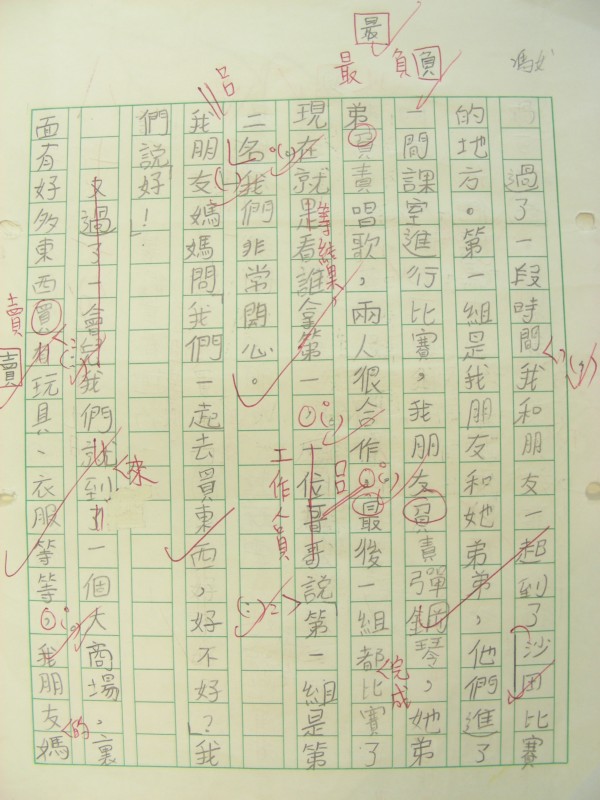 馮
最
最 負 負
過了一段時間我和朋友一起到了沙田比賽
的地方。第一組是我朋友和她弟弟,他們進了
一間課室進行比賽,我朋友負責彈鋼琴,她弟
弟負責唱歌,兩人很合作。最後一組都比賽了
完成
現在就是看誰拿第一。十位哥哥說「第一組是第
等結果
工作人員
二名」我們非常開心。
我朋友媽媽問「我們一起去買東西,好不好?」我
們說好!
又過了一會兒我們就到了一個大商場,裏
來
面有好多東西買有玩具、衣服等等。我朋友媽
的
賣
賣